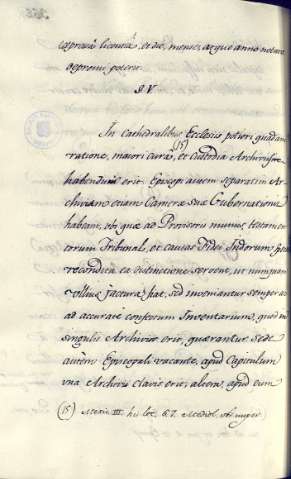 expressa licentiâ, et die, mense, atque anno notare
exprimi poterit.
§. V
In Cathedralibus Ecclesiis potiori quadam
ratione, maiori curâ, (15) et custodia Archivum
habendum erit. Episcopi autem separatim Ar-
chivum etiam Camerae suae Gubernationis
habeant, ubi quae ad Pervisitu munus, testamen
torum Tribunal, et causas Fidei Indorum
recondita ea distinctione serventur, ut nunquam
ullius jactura fiat, sed inveniantur semper ac
ad accurate confectum Inventarium, quod in
singulis Archiviis erit, quaerantur. Sede
autem Episcopali vacante, apud Capitulum
una Archivii clavis erit, altera, apud eum
(15) Mexic. III. hic loc. 67. Mediol.